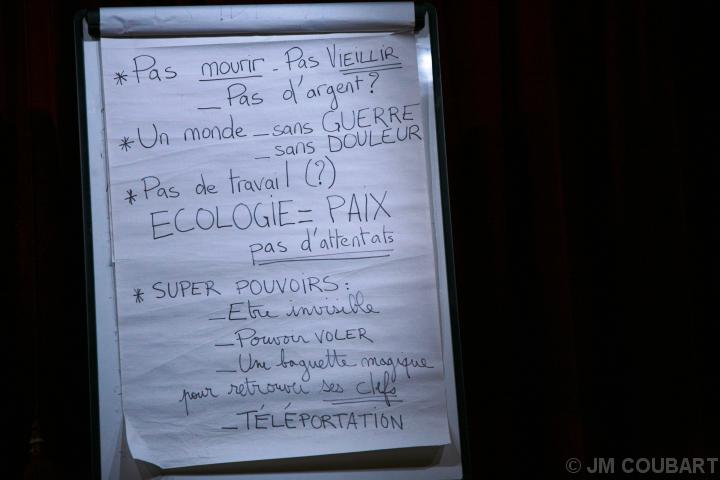 * Pas mourir - Pas VIEILLIR
- Pas d'argent?
* Un monde - sans GUERRE
- sans DOULEUR
* Pas de travail (?)
ECOLOGIE = PAIX
pas d'attentats
* SUPER POUVOIRS:
- Etre invisible
- Pouvoir VOLER
- Une baguette magique
pour retrouver ses clefs
- TÉLÉPORTATION
© JM COUBART